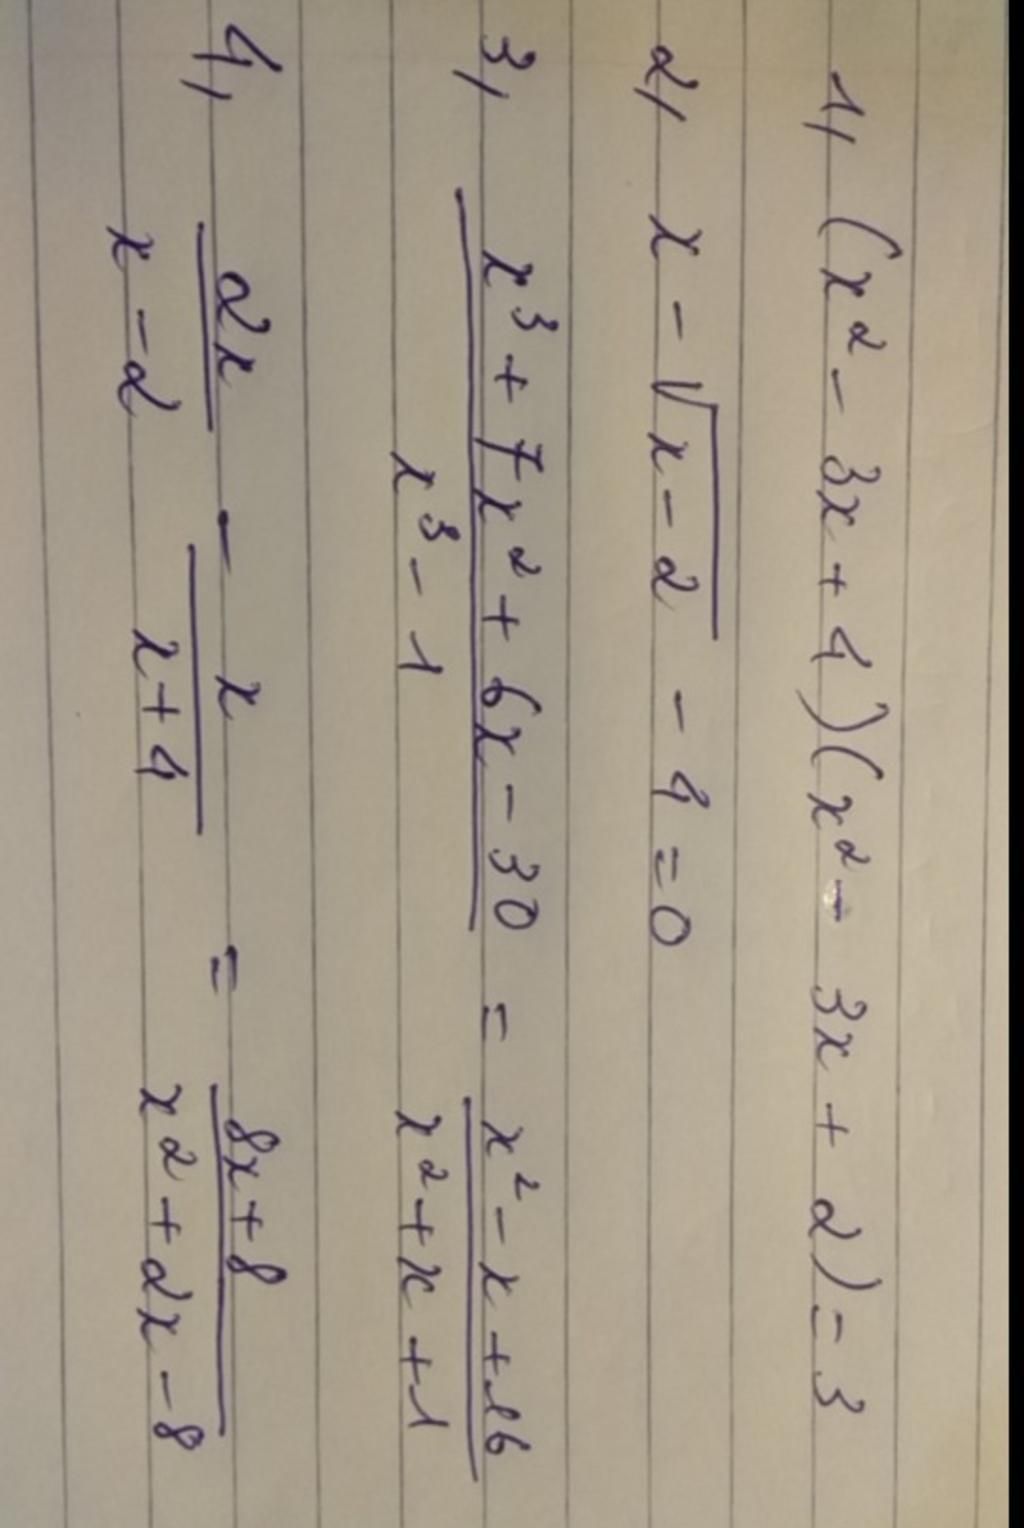 1, (x² - 3x + 4)(x² - 3x + 2) = 3
2, x - √(x - 2) - 4 = 0
3, (x³ + 7x² + 6x - 30)/(x³ - 1) = (x² - x + 16)/(x² + x + 1)
4, 2x/(x - 2) - x/(x + 4) = (8x + 8)/(x² + 2x - 8)